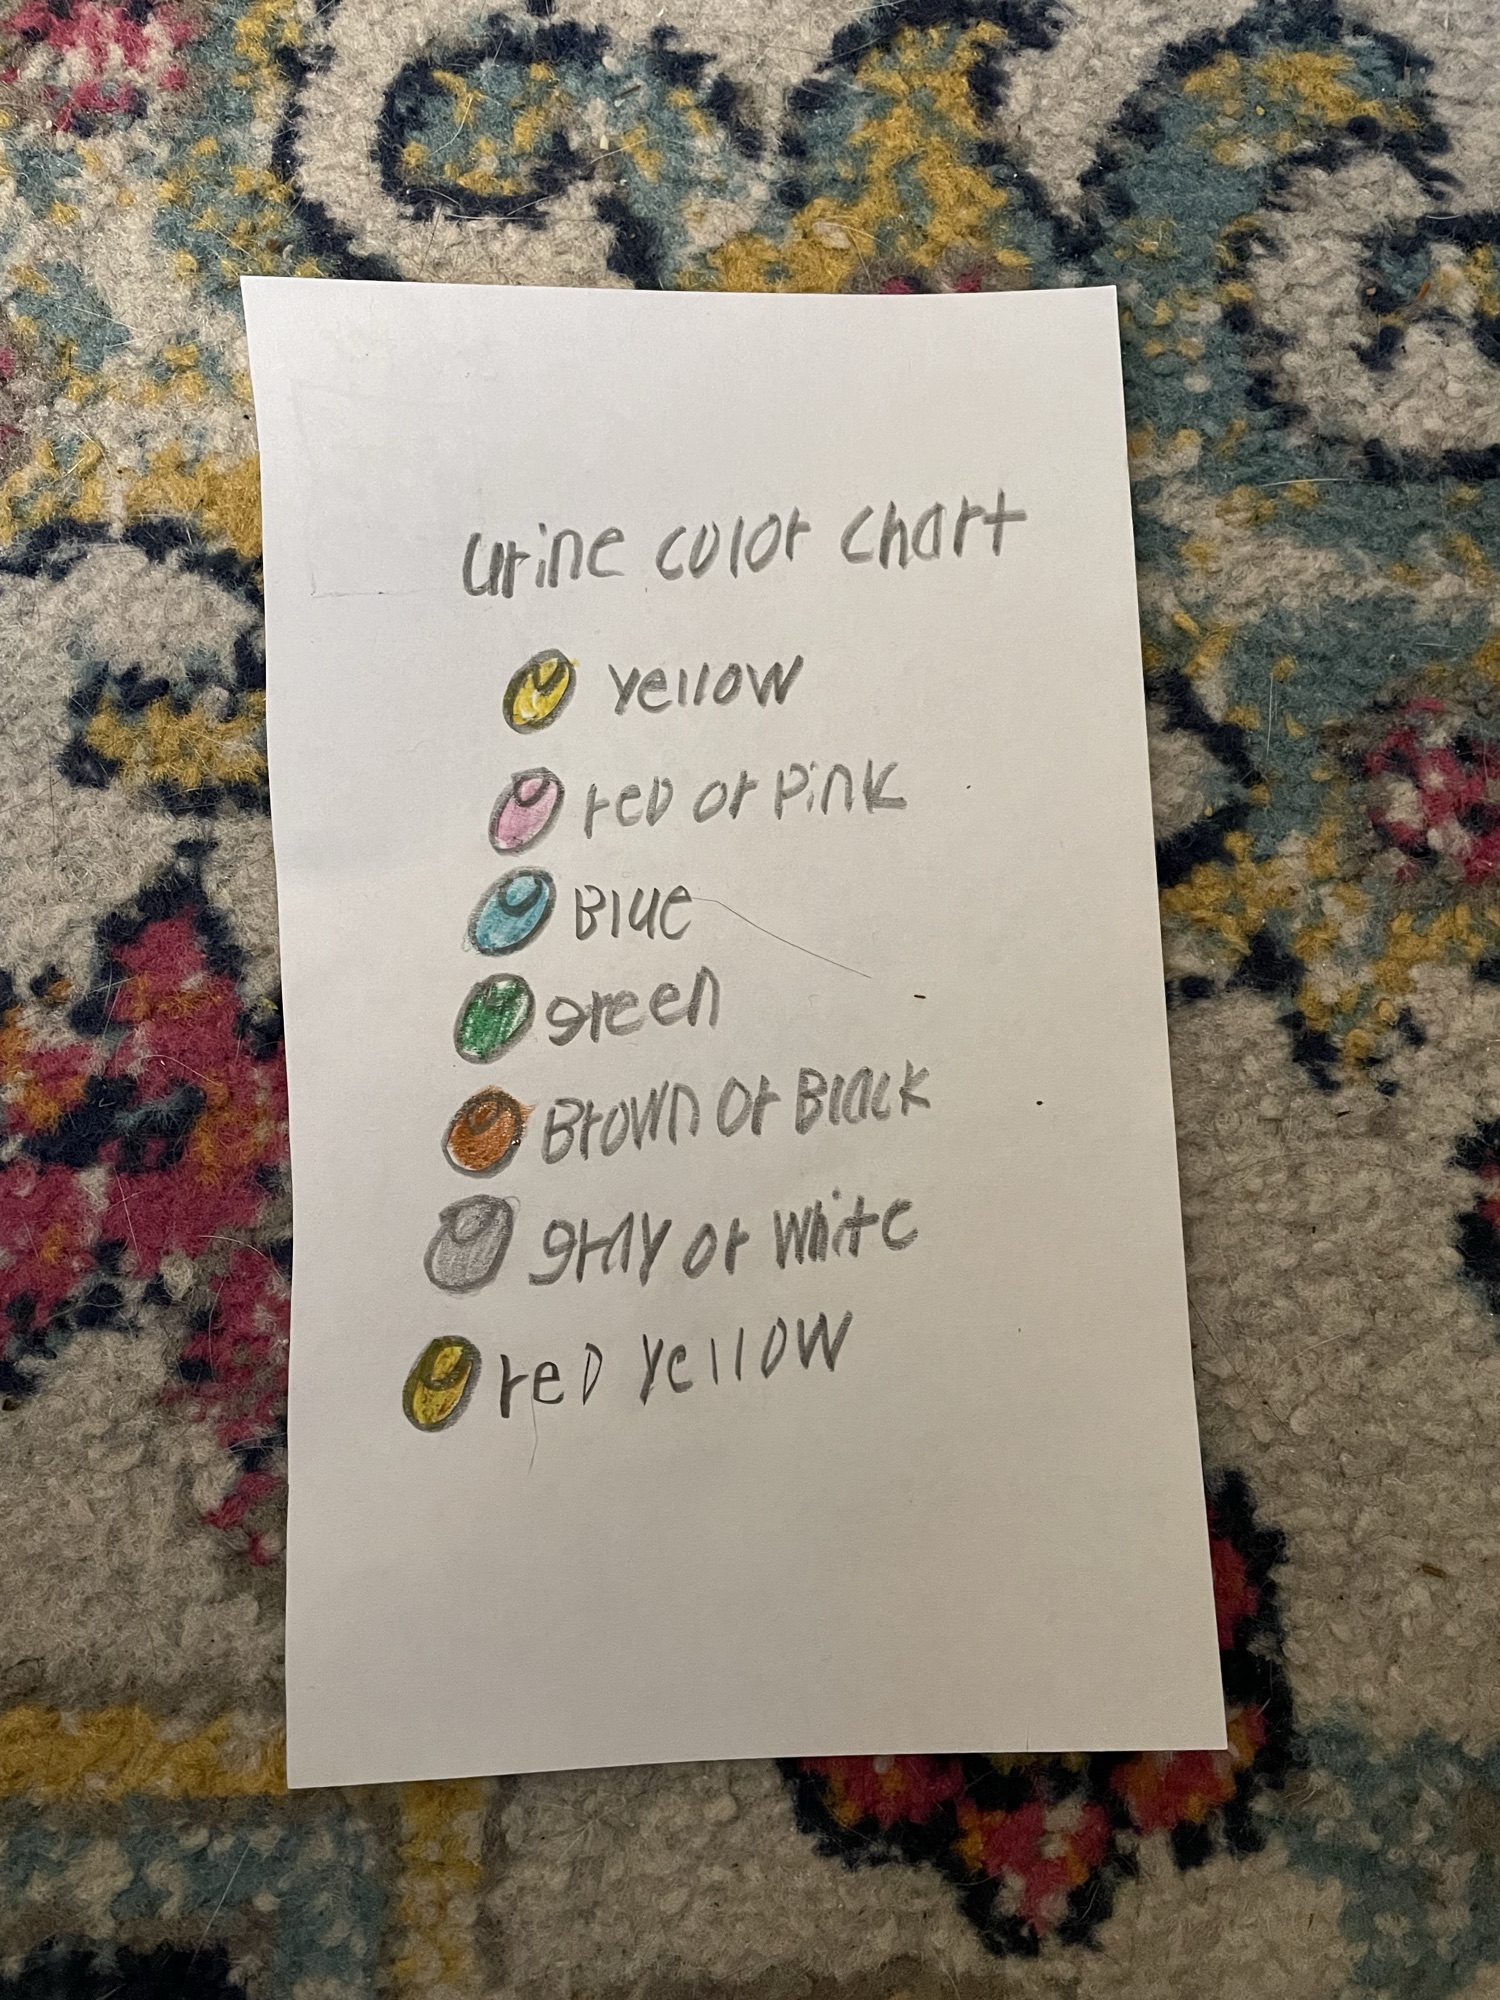 urine color chart
yellow
reD or Pink
Blue
green
Brown or Black
gray or white
reD yellow